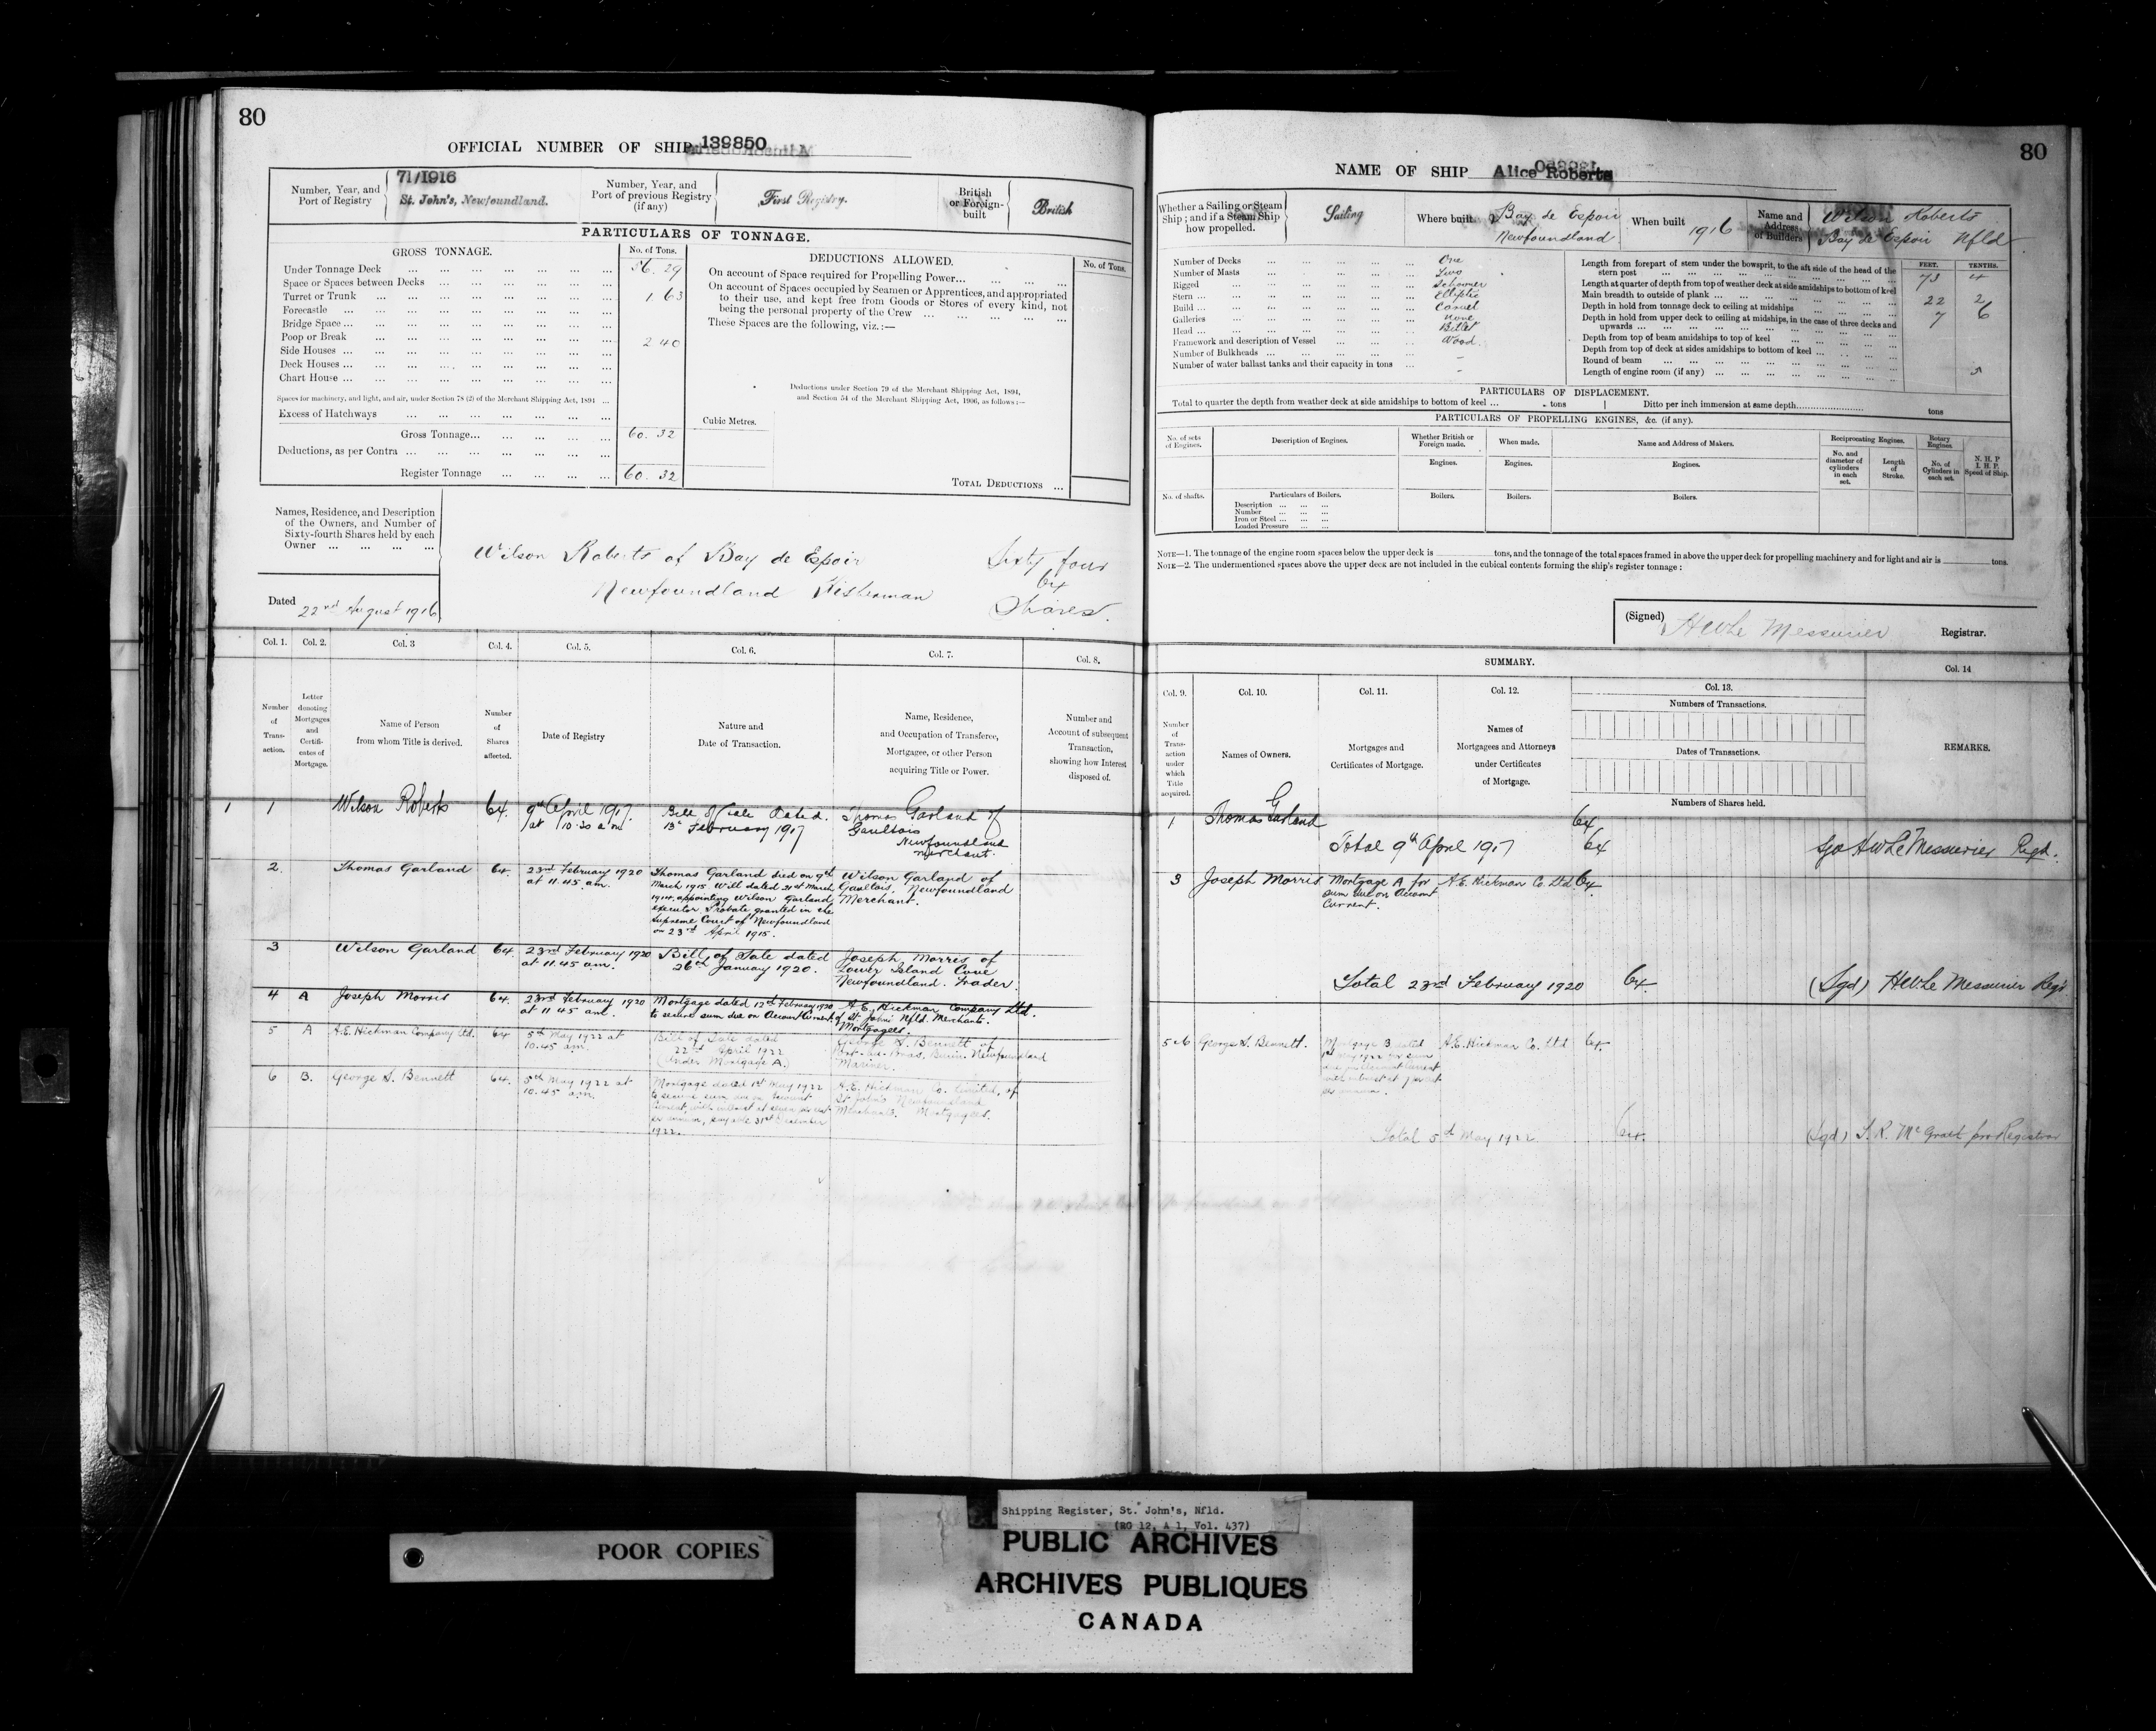 80
OFFICIAL NUMBER OF SHIP 139850
Number, Year, and Port of Registry
71/1916
St. John's, Newfoundland.
Number, Year, and Port of previous Registry (if any)
First Registry.
British or Foreign-built
British
PARTICULARS OF TONNAGE.
GROSS TONNAGE.
No. of Tons.
Under Tonnage Deck 56.29
Space or Spaces between Decks
Turret or Trunk 1.63
Forecastle
Bridge Space
Poop or Break 2 40
Side Houses
Deck Houses
Chart House
Spaces for machinery, and light, and air, under Section 78 (2) of the Merchant Shipping Act, 1894
Excess of Hatchways
Gross Tonnage 60.32
Deductions, as per Contra
Register Tonnage 60.32
DEDUCTIONS ALLOWED.
No. of Tons.
On account of Space required for Propelling Power
On account of Spaces occupied by Seamen or Apprentices, and appropriated
to their use, and kept free from Goods or Stores of every kind, not
being the personal property of the Crew
These Spaces are the following, viz.:—
Deductions under Section 79 of the Merchant Shipping Act, 1894,
and Section 54 of the Merchant Shipping Act, 1906, as follows:—
Cubic Metres.
TOTAL DEDUCTIONS
Names, Residence, and Description
of the Owners, and Number of
Sixty-fourth Shares held by each
Owner
Wilson Roberts of Bay de Espoir
Newfoundland Fisherman
Sixty four
64
Shares.
Dated 22nd August 1916
Col. 1. Col. 2. Col. 3 Col. 4. Col. 5. Col. 6. Col. 7. Col. 8.
Number of Transaction.
Letter denoting Mortgages and Certificates of Mortgage.
Name of Person from whom Title is derived.
Number of Shares affected.
Date of Registry
Nature and Date of Transaction.
Name, Residence, and Occupation of Transferee, Mortgagee, or other Person acquiring Title or Power.
Number and Account of subsequent Transaction, showing how Interest disposed of.
1 1 Wilson Roberts 64. 9th April 1917. at 10.30 a m Bill of Sale Dated. 13th February 1917 Thomas Garland of Gaultois Newfoundland Merchant.
2. Thomas Garland 64. 23rd February 1920 at 11.45 am. Thomas Garland died on 9th March 1915. Will dated 21st March 1914, appointing Wilson Garland executor. Probate granted in the Supreme Court of Newfoundland on 23rd April 1915. Wilson Garland of Gaultois, Newfoundland Merchant.
3 Wilson Garland 64. 23rd February 1920 at 11.45 am. Bill of Sale dated 26th January 1920. Joseph Morris of Lower Island Cove Newfoundland. Trader.
4 A Joseph Morris 64. 23rd February 1920 at 11 45 am. Mortgage dated 12th February 1920 to secure sum due on Account Current. A. E. Hickman Company Ltd. of St. John's Nfld. Merchants. Mortgagees.
5 A A.E. Hickman Company Ltd. 64 5th May 1922 at 10.45 am. Bill of Sale dated 22nd April 1922 (Under Mortgage A.) George S. Bennett of Burin, Newfoundland Mariner.
6 B. George S. Bennett 64. 5th May 1922 at 10.45 am. Mortgage dated 1st May 1922 to secure sum due on Account Current, with interest at seven per cent per annum, payable 31st December 1922. A.E. Hickman Co. Limited, of St John's Newfoundland Merchants. Mortgagees.
80
NAME OF SHIP Alice Roberts
Whether a Sailing or Steam Ship; and if a Steam Ship how propelled.
Sailing
Where built
Bay de Espoir
Newfoundland
When built 1916
Name and Address of Builders
Wilson Roberts
Bay de Espoir Nfld
Number of Decks One
Number of Masts Two
Rigged Schooner
Stern Elliptic
Build Carvel
Galleries None
Head Billet
Framework and description of Vessel Wood.
Number of Bulkheads –
Number of water ballast tanks and their capacity in tons –
FEET. TENTHS.
Length from forepart of stem under the bowsprit, to the aft side of the head of the
stern post 73 4
Length at quarter of depth from top of weather deck at side amidships to bottom of keel
Main breadth to outside of plank 22 2
Depth in hold from tonnage deck to ceiling at midships 7 6
Depth in hold from upper deck to ceiling at midships, in the case of three decks and
upwards
Depth from top of beam amidships to top of keel
Depth from top of deck at sides amidships to bottom of keel
Round of beam 5
Length of engine room (if any)
PARTICULARS OF DISPLACEMENT.
Total to quarter the depth from weather deck at side amidships to bottom of keel tons Ditto per inch immersion at same depth tons
PARTICULARS OF PROPELLING ENGINES, &c. (if any).
No. of sets of Engines.
Description of Engines.
Whether British or Foreign made.
When made.
Name and Address of Makers.
Reciprocating Engines.
Rotary Engines.
N. H. P. I. H. P. Speed of Ship.
Engines. Engines. Engines.
No. and diameter of cylinders in each set.
Length of Stroke.
No. of Cylinders in each set.
No. of shafts.
Particulars of Boilers.
Boilers. Boilers. Boilers.
Description
Number
Iron or Steel
Loaded Pressure
NOTE—1. The tonnage of the engine room spaces below the upper deck is tons, and the tonnage of the total spaces framed in above the upper deck for propelling machinery and for light and air is tons.
NOTE—2. The undermentioned spaces above the upper deck are not included in the cubical contents forming the ship's register tonnage:
(Signed) HW Le Messurier Registrar.
SUMMARY.
Col. 9. Col. 10. Col. 11. Col. 12. Col. 13. Col. 14
Number of Transaction under which Title acquired.
Names of Owners.
Mortgages and Certificates of Mortgage.
Names of Mortgagees and Attorneys under Certificates of Mortgage.
Numbers of Transactions.
Dates of Transactions.
Numbers of Shares held.
REMARKS.
1 Thomas Garland 64
Total 9th April 1917 64 Sgd HW Le Messurier Regr.
3 Joseph Morris Mortgage A for sum due on Account Current. A.E. Hickman Co. Ltd 64
Total 23rd February 1920 64. (Sgd) HW Le Messurier Regr
5 & 6 George S. Bennett. Mortgage B dated 1st May 1922 for sum due on Account Current with interest at 7 per cent per annum. A.E. Hickman Co. Ltd 64.
Total 5th May 1922 64. (Sgd) S. R. McGrath for Registrar
POOR COPIES
Shipping Register, St. John's, Nfld.
(RG 12, A 1, Vol. 437)
PUBLIC ARCHIVES
ARCHIVES PUBLIQUES
CANADA